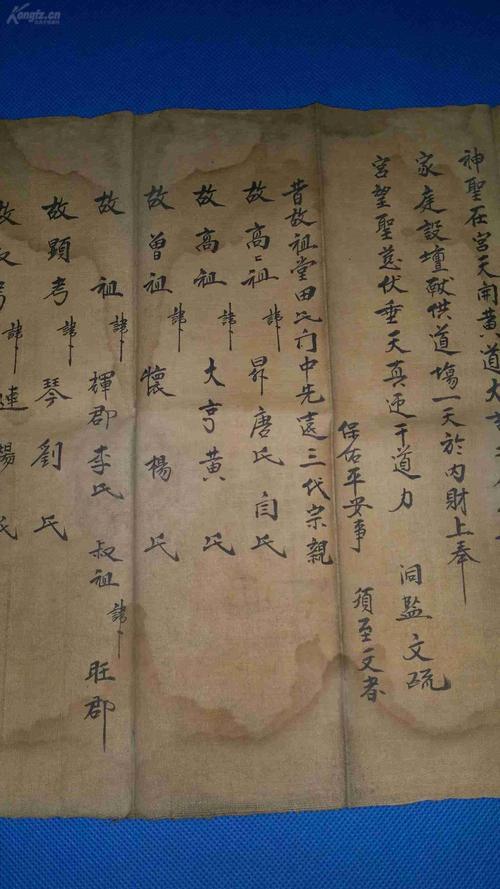 Kongfz.cn
神聖在宮天開黄道大
家庭設壇献供道塲一天於内財上奉
宮望聖慈伏垂天真迓干道力 洞監文疏
保佑平安事 須至文者
昔故祖堂田氏門中先遠三代宗親
故高〻祖諱〻昇唐氏闫氏
故高祖諱〻大亨黄氏
故曽祖諱〻懷楊氏
故祖諱〻輝郡李氏 叔祖諱〻旺郡
故顕考諱〻琴劉氏
故 考諱〻連楊氏